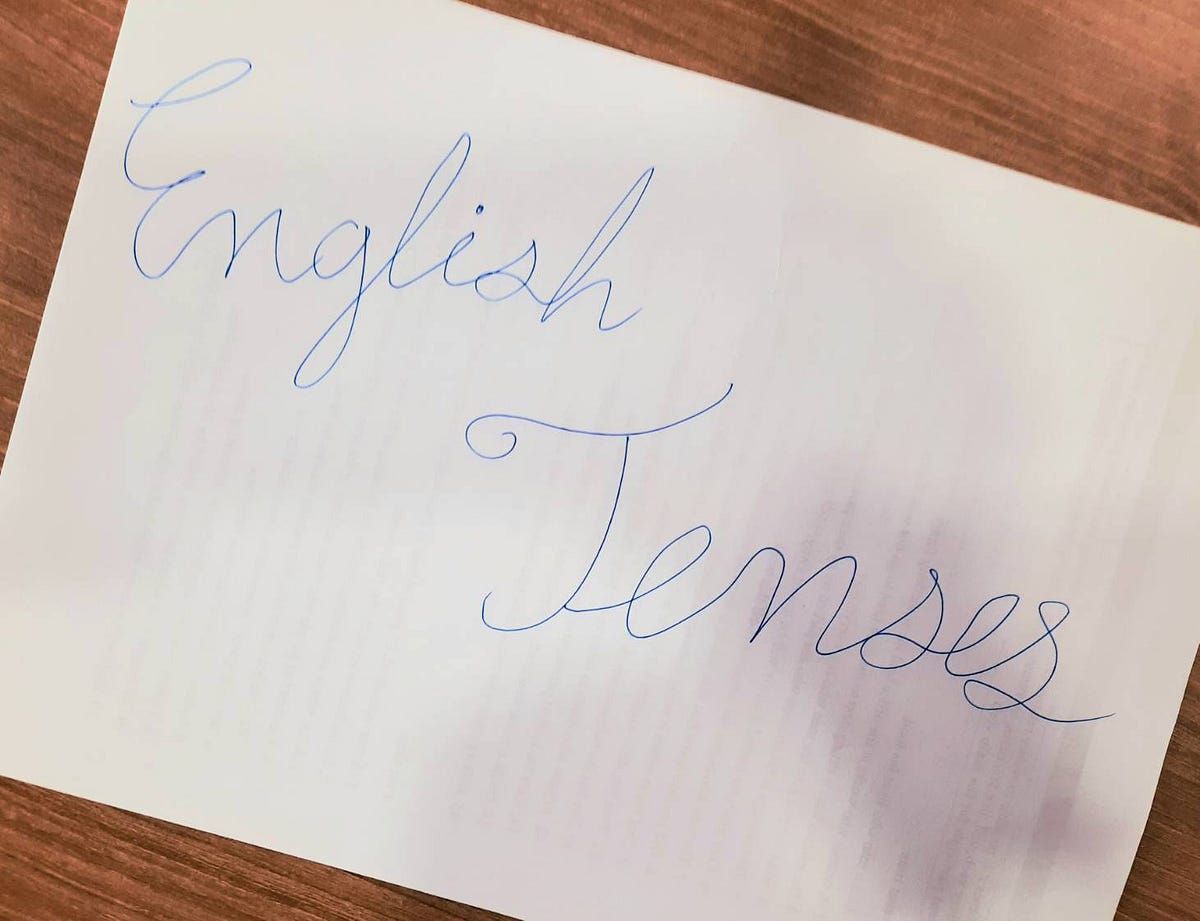 English
Tenses